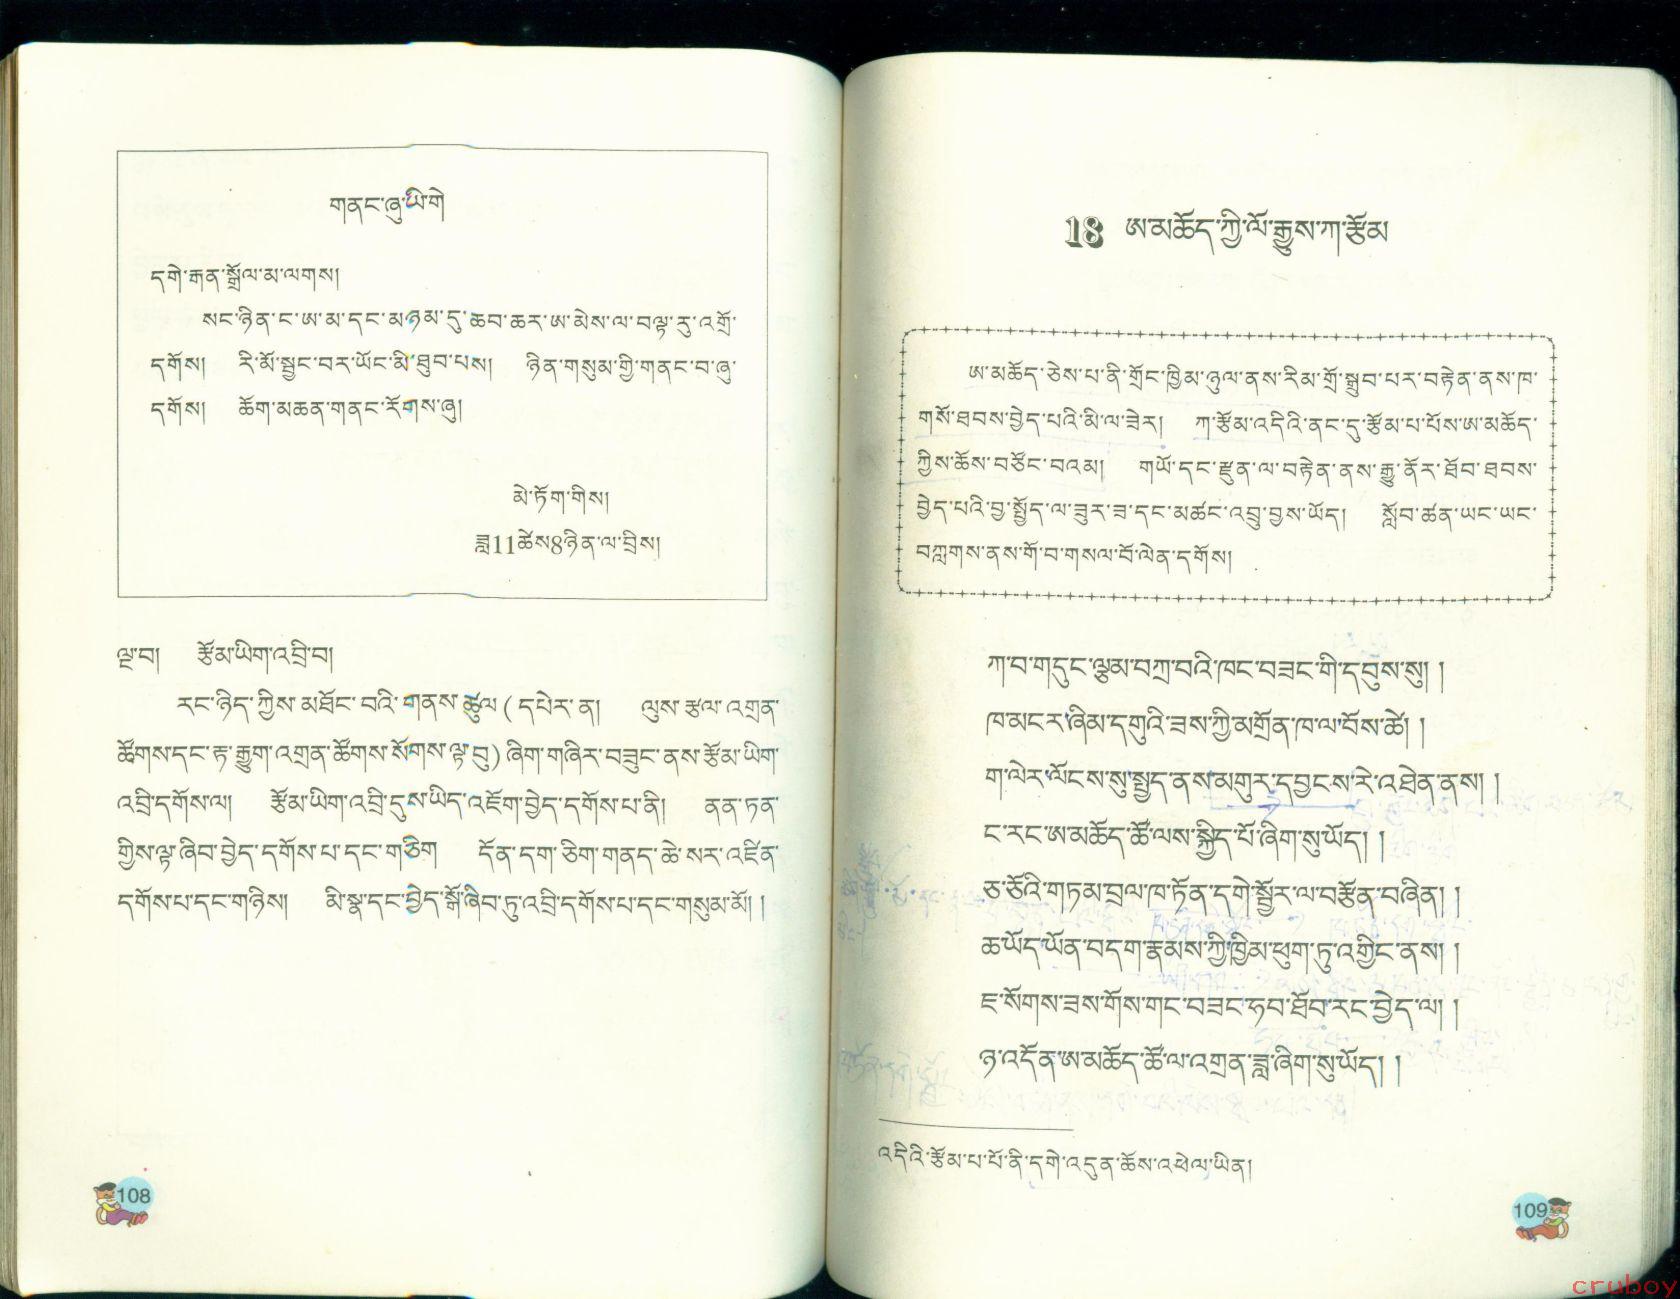 གནང་ཞུ་ཡི་གེ
དགེ་རྒན་སྒྲོལ་མ་ལགས།
སང་ཉིན་ང་ཨ་མ་དང་མཉམ་དུ་ཆབ་ཆར་ཨ་མེས་ལ་བལྟ་རུ་འགྲོ་
དགོས། རི་མོ་སྦྱང་བར་ཡོང་མི་ཐུབ་པས། ཉིན་གསུམ་གྱི་གནང་བ་ཞུ་
དགོས། ཆོག་མཆན་གནང་རོགས་ཞུ།
མེ་ཏོག་གིས།
ཟླ11ཚེས8ཉིན་ལ་བྲིས།
ལྔ་བ། རྩོམ་ཡིག་འབྲི་བ།
རང་ཉིད་ཀྱིས་མཐོང་བའི་གནས་ཚུལ(དཔེར་ན། ལུས་རྩལ་འགྲན་
ཚོགས་དང་རྟ་རྒྱུག་འགྲན་ཚོགས་སོགས་ལྟ་བུ)ཞིག་གཞིར་བཟུང་ནས་རྩོམ་ཡིག་
འབྲི་དགོས་ལ། རྩོམ་ཡིག་འབྲི་དུས་ཡིད་འཇོག་བྱེད་དགོས་པ་ནི། ནན་ཏན་
གྱིས་ལྟ་ཞིབ་བྱེད་དགོས་པ་དང་གཅིག དོན་དག་ཅིག་གནད་ཆེ་སར་འཛིན་
དགོས་པ་དང་གཉིས། མི་སྣ་དང་བྱེད་སྒོ་ཞིབ་ཏུ་འབྲི་དགོས་པ་དང་གསུམ་མོ། །
108
18 ཨ་མཆོད་ཀྱི་ལོ་རྒྱུས་ཀ་རྩོམ
ཨ་མཆོད་ཅེས་པ་ནི་གྲོང་ཁྱིམ་ཉུལ་ནས་རིམ་གྲོ་སྒྲུབ་པར་བརྟེན་ནས་ཁ་
གསོ་ཐབས་བྱེད་པའི་མི་ལ་ཟེར། ཀ་རྩོམ་འདིའི་ནང་དུ་རྩོམ་པ་པོས་ཨ་མཆོད་
ཀྱིས་ཆོས་བཙོང་བའམ། གཡོ་དང་རྫུན་ལ་བརྟེན་ནས་རྒྱུ་ནོར་ཐོབ་ཐབས་
བྱེད་པའི་བྱ་སྤྱོད་ལ་ཟུར་ཟ་དང་མཚང་འབྲུ་བྱས་ཡོད། སློབ་ཚན་ཡང་ཡང་
བཀླགས་ནས་གོ་བ་གསལ་པོ་ལེན་དགོས།
ཀ་བ་གདུང་ལྕམ་བཀྲ་བའི་ཁང་བཟང་གི་དབུས་སུ། །
ཁ་མངར་ཞིམ་དགུའི་ཟས་ཀྱི་མགྲོན་ཁ་ལ་བོས་ཚེ། །
ག་ལེར་ལོངས་སུ་སྤྱད་ནས་མགུར་དབྱངས་རེ་འཐེན་ནས། །
ང་རང་ཨ་མཆོད་ཚོ་ལས་སྐྱིད་པོ་ཞིག་སུ་ཡོད། །
ཅ་ཅོའི་གཏམ་བྲལ་ཁ་ཏོན་དགེ་སྦྱོར་ལ་བརྩོན་བཞིན། །
ཆ་ཡོད་ཡོན་བདག་རྣམས་ཀྱི་ཁྱིམ་ཕུག་ཏུ་འགྱིང་ནས། །
ཇ་སོགས་ཟས་གོས་གང་བཟང་ཧབ་ཐོབ་རང་བྱེད་ལ། །
ཉ་འདོན་ཨ་མཆོད་ཚོ་ལ་འགྲན་ཟླ་ཞིག་སུ་ཡོད། །
འདིའི་རྩོམ་པ་པོ་ནི་དགེ་འདུན་ཆོས་འཕེལ་ཡིན།
109
cruboy